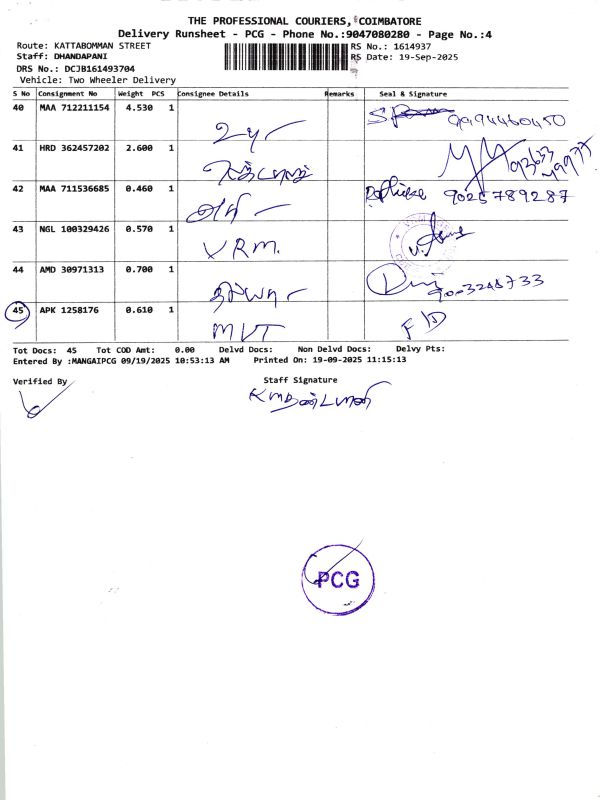 THE PROFESSIONAL COURIERS, COIMBATORE
Delivery Runsheet - PCG - Phone No.:9047080280 - Page No.:4
Route: KATTABOMMAN STREET RS No.: 1614937
Staff: DHANDAPANI RS Date: 19-Sep-2025
DRS No.: DCJB161493704
Vehicle: Two Wheeler Delivery
S No Consignment No Weight PCS Consignee Details Remarks Seal & Signature
40 MAA 712211154 4.530 1 9994460450
41 HRD 362457202 2.600 1
42 MAA 711536685 0.460 1 9025789287
43 NGL 100329426 0.570 1 V.R.M.
44 AMD 30971313 0.700 1
45 APK 1258176 0.610 1 MVT
Tot Docs: 45 Tot COD Amt: 0.00 Delvd Docs: Non Delvd Docs: Delvy Pts:
Entered By :MANGAIPCG 09/19/2025 10:53:13 AM Printed On: 19-09-2025 11:15:13
Verified By Staff Signature
PCG